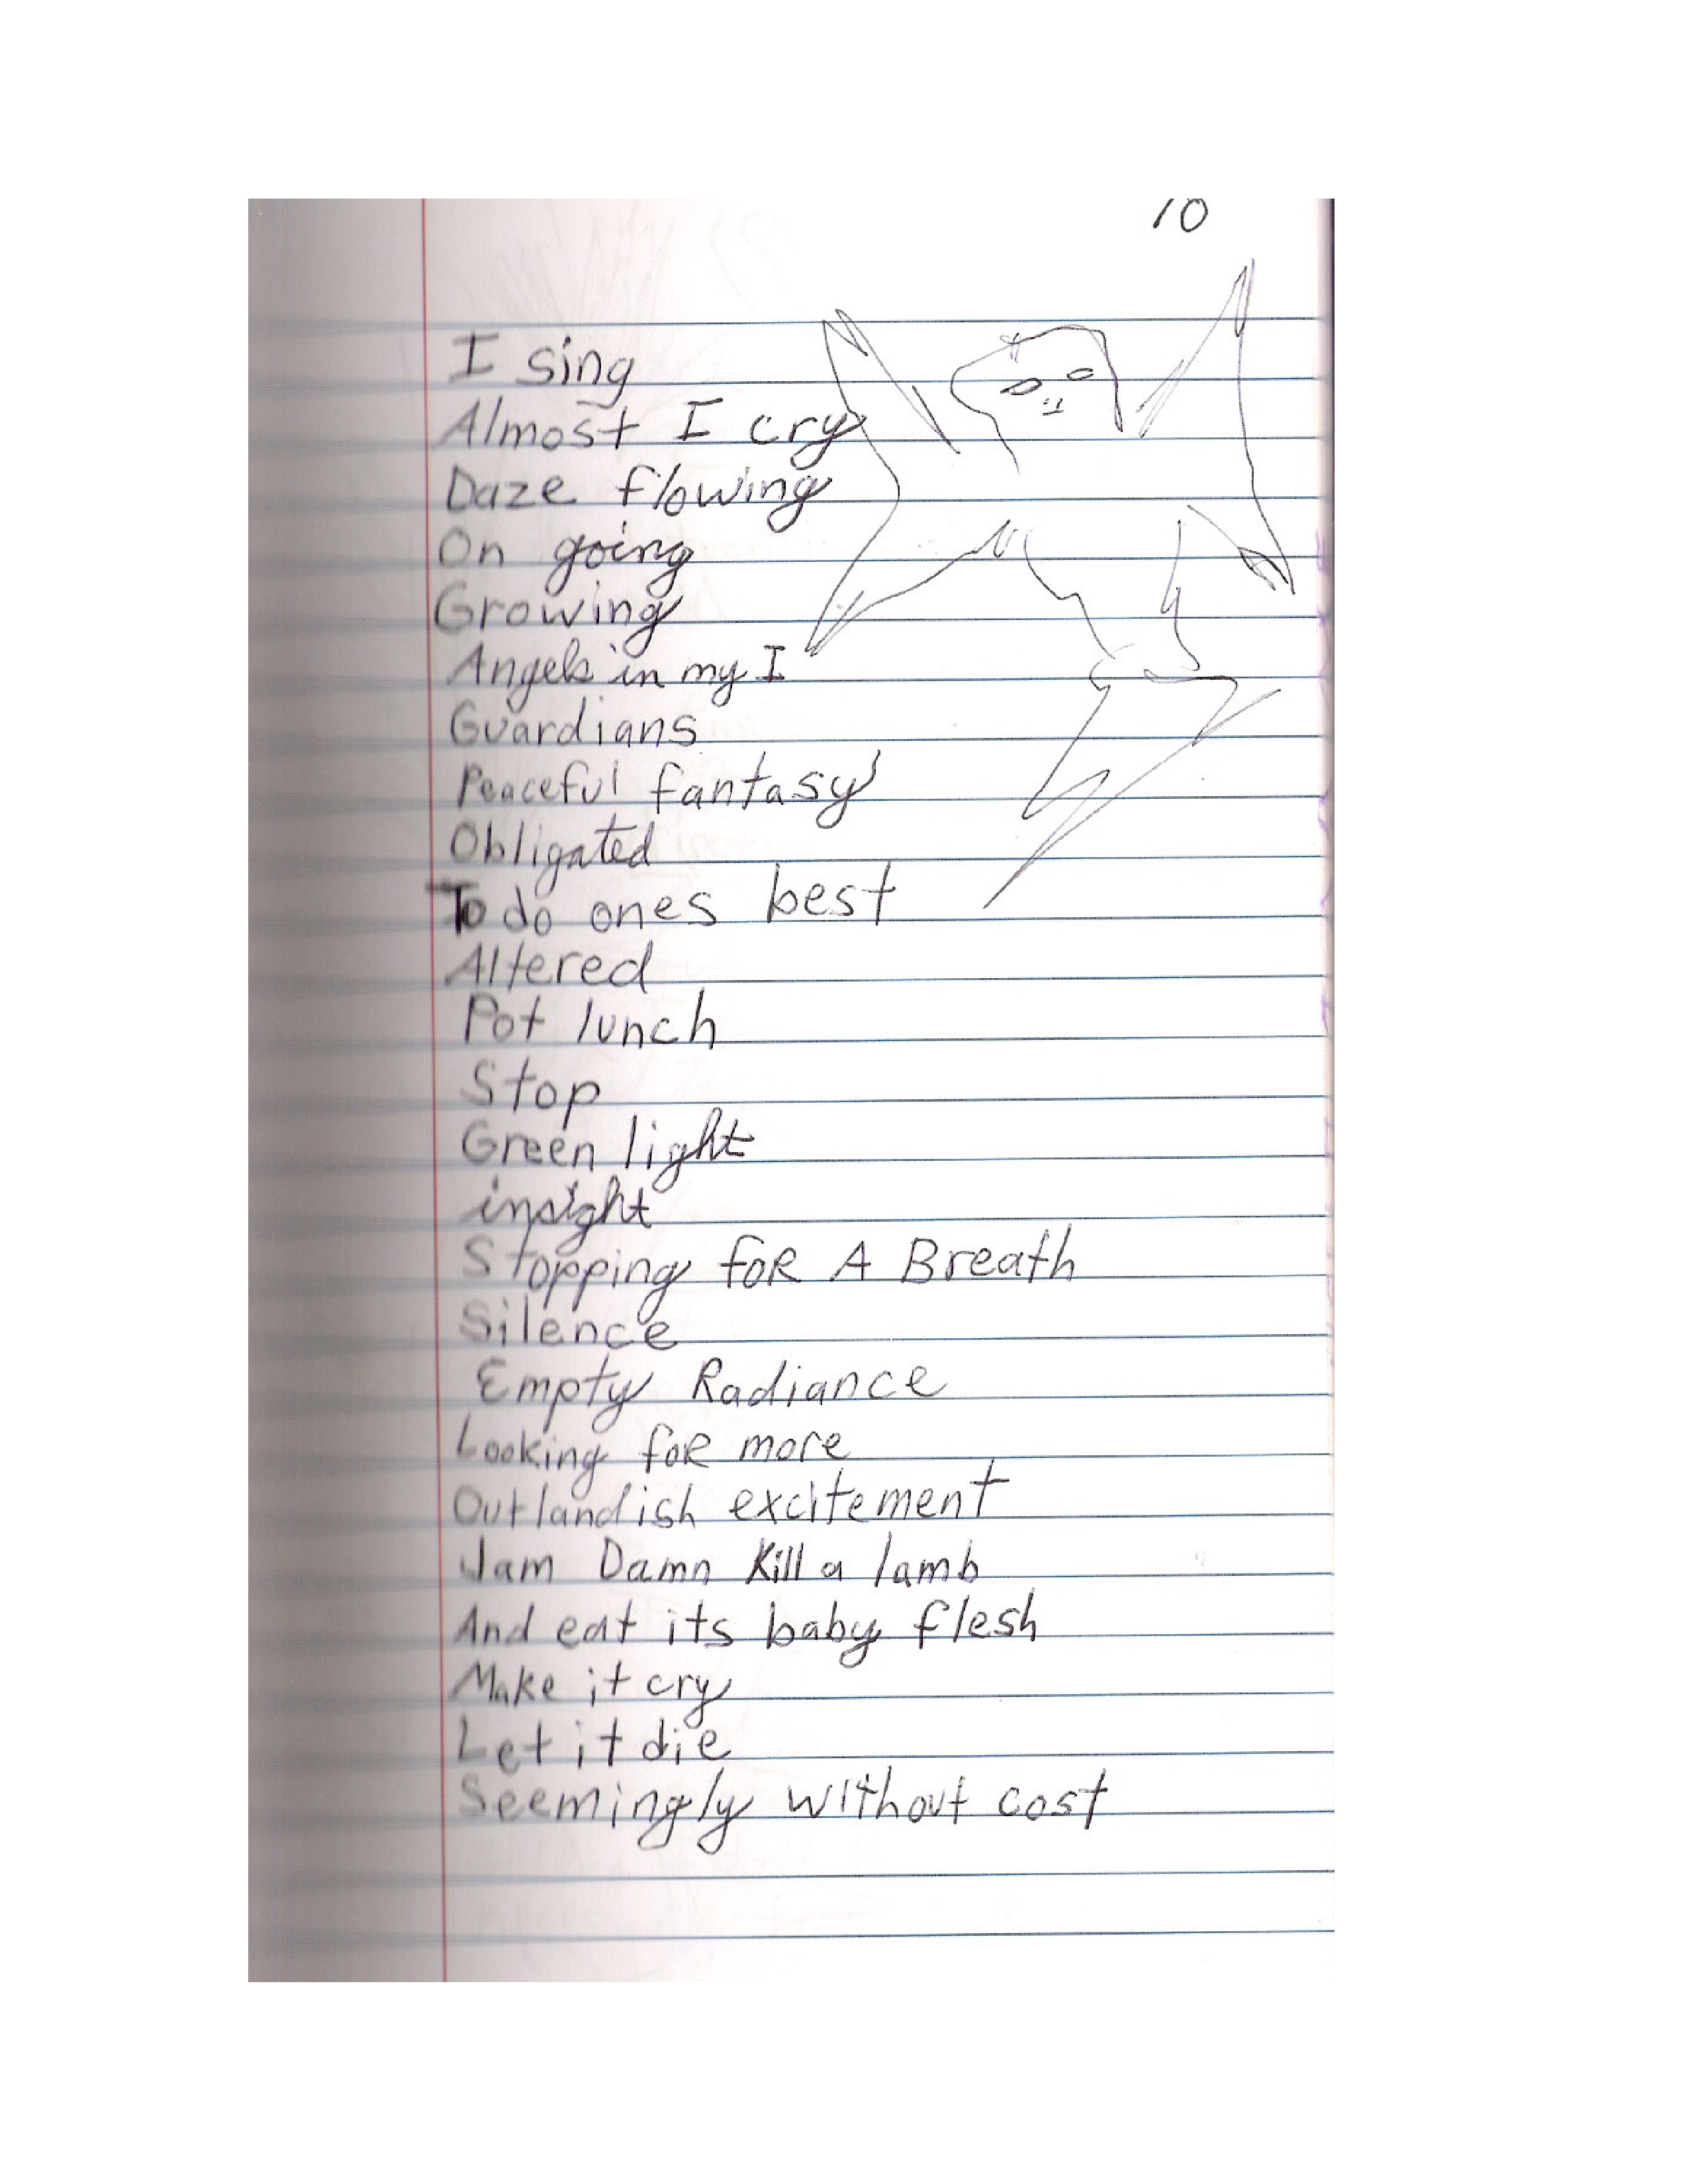 10
I sing
Almost I cry
Daze flowing
On going
Growing
Angels in my I
Guardians
Peaceful fantasy
Obligated
To do ones best
Altered
Pot lunch
Stop
Green light
insight
Stopping foR A Breath
Silence
Empty Radiance
Looking foR more
Outlandish excitement
Jam Damn Kill a lamb
And eat its baby flesh
Make it cry
Let it die
Seemingly without cost